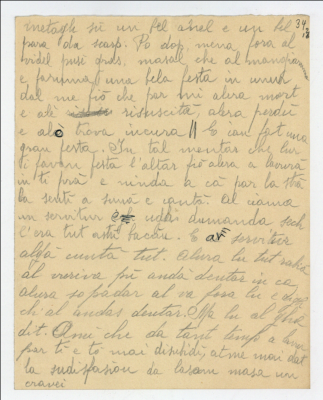 34.
metagh sü un bel anel e un bel
para da scarp. Po dop, mena fora al
videl püsé gras, masal che al mangia
e farumm una bela festa in
dal me fiö che par mi alera mort
e alè risuscitá, alera perdü
e alò trova incura || E ian fat una
gran festa. In tal mentar che lur
i favan festa l'altar fiö alera a laurá
in ti prá e ninda a cá par la strá
la sentü a suná e cantá. al ciama
un servitur e ugh dumanda
l'era tut facäu. E servitur
algá cuntá tut. Alura lü tut rabiá
al vureva pü andá dentar in cá,
alura so padar al va fora lü e
ch'al andas dentar. Ma lü al ghá
dit. O mi che da tant temp a
par ti e tö mai disübidi, at me mai dat
la sudisfasion da lasam masá un
cravei